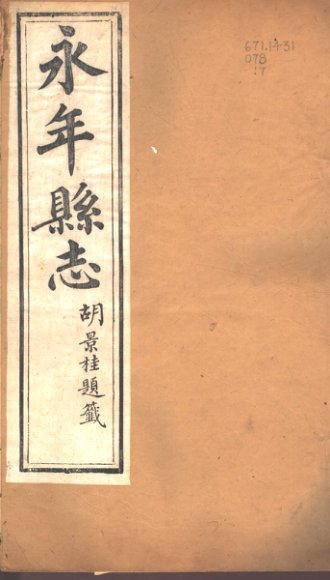 永年縣志
胡景桂題籤
671.1431
078
:7